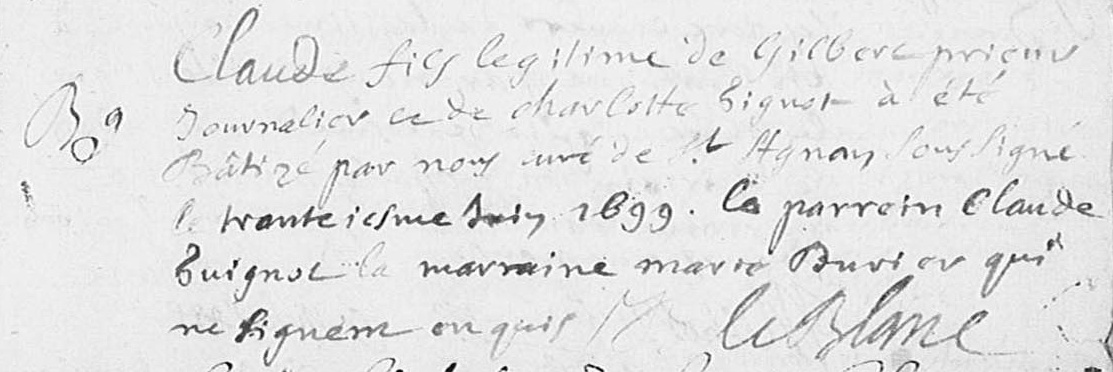 Claude fils legitime de Gilbert prieur
Bạ
Journalier et de charlotte bignot à été
Bâtizé par nous curé de St Agnan soussigné
le tranteiesme Juin 1699. le parrein Claude
buignot la marraine marie Burier qui
ne signent enquis
le Blanc